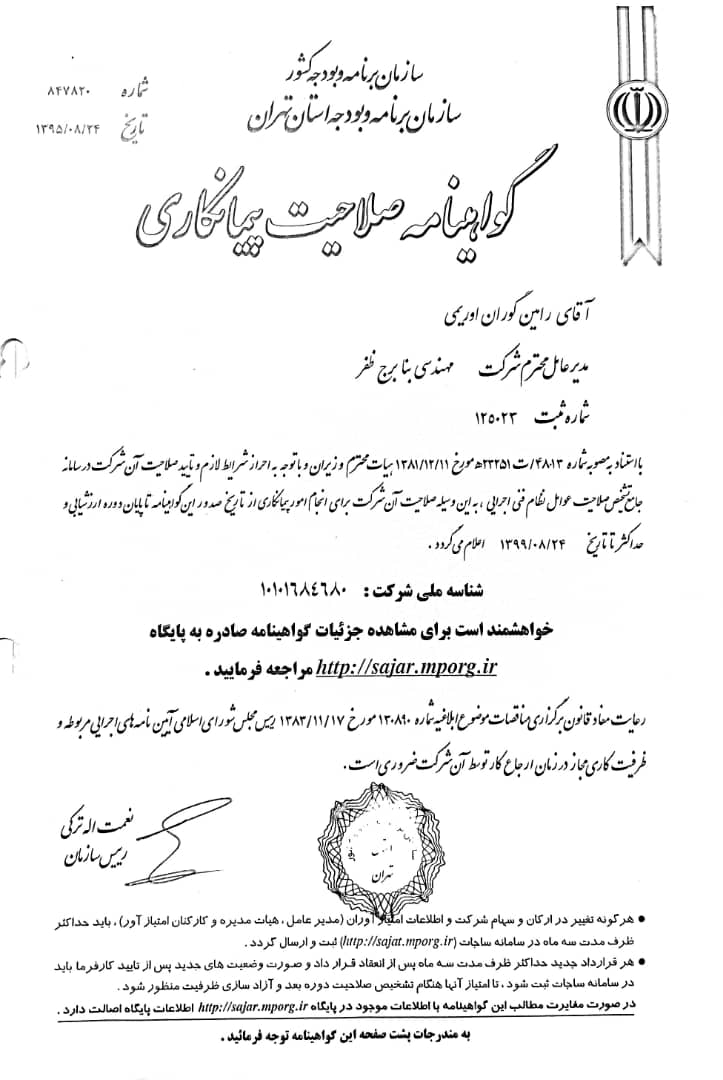 سازمان برنامه و بودجه کشور
سازمان برنامه و بودجه استان تهران
شماره ۸۴۷۸۲۰
تاریخ ۱۳۹۵/۰۸/۲۴
گواهینامه صلاحیت پیمانکاری
آقای رامین گوران اوریمی
مدیرعامل محترم شرکت مهندسی بنا برج ظفر
شماره ثبت ۱۲۵۰۲۳
با استناد به مصوبه شماره ۴۸۰۱۳/ت۲۳۲۵۱ه مورخ ۱۳۸۱/۱۲/۱۱ هیات محترم وزیران و با توجه به احراز شرایط لازم و تأیید صلاحیت آن شرکت در سامانه
جامع تشخیص صلاحیت عوامل نظام فنی اجرایی ، به این وسیله صلاحیت آن شرکت برای انجام امور پیمانکاری از تاریخ صدور این گواهینامه تا پایان دوره ارزشیابی و
حداکثر تا تاریخ ۱۳۹۹/۰۸/۲۴ اعلام می گردد .
شناسه ملی شرکت : ۱۰۱۰۱۶۸۴۶۸۰
خواهشمند است برای مشاهده جزئیات گواهینامه صادره به پایگاه
http://sajar.mporg.ir مراجعه فرمایید .
رعایت مفاد قانون برگزاری مناقصات موضوع ابلاغیه شماره ۱۳۰۸۹۰ مورخ ۱۳۸۳/۱۱/۱۷ رییس مجلس شورای اسلامی آیین نامه های اجرایی مربوطه و
ظرفیت کاری مجاز در زمان ارجاع کار توسط آن شرکت ضروری است .
نعمت اله ترکی
رییس سازمان
تهران
● هر گونه تغییر در ارکان و سهام شرکت و اطلاعات امتیاز آوران (مدیر عامل ، هیات مدیره و کارکنان امتیاز آور) ، باید حداکثر
ظرف مدت سه ماه در سامانه ساجات (http://sajat.mporg.ir) ثبت و ارسال گردد .
● هر قرارداد جدید حداکثر ظرف مدت سه ماه پس از انعقاد قرار داد و صورت وضعیت های جدید پس از تایید کارفرما باید
در سامانه ساجات ثبت شود ، تا امتیاز آنها هنگام تشخیص صلاحیت دوره بعد و آزاد سازی ظرفیت منظور شود .
در صورت مغایرت مطالب این گواهینامه با اطلاعات موجود در پایگاه http://sajar.mporg.ir اطلاعات پایگاه اصالت دارد .
به مندرجات پشت صفحه این گواهینامه توجه فرمائید .